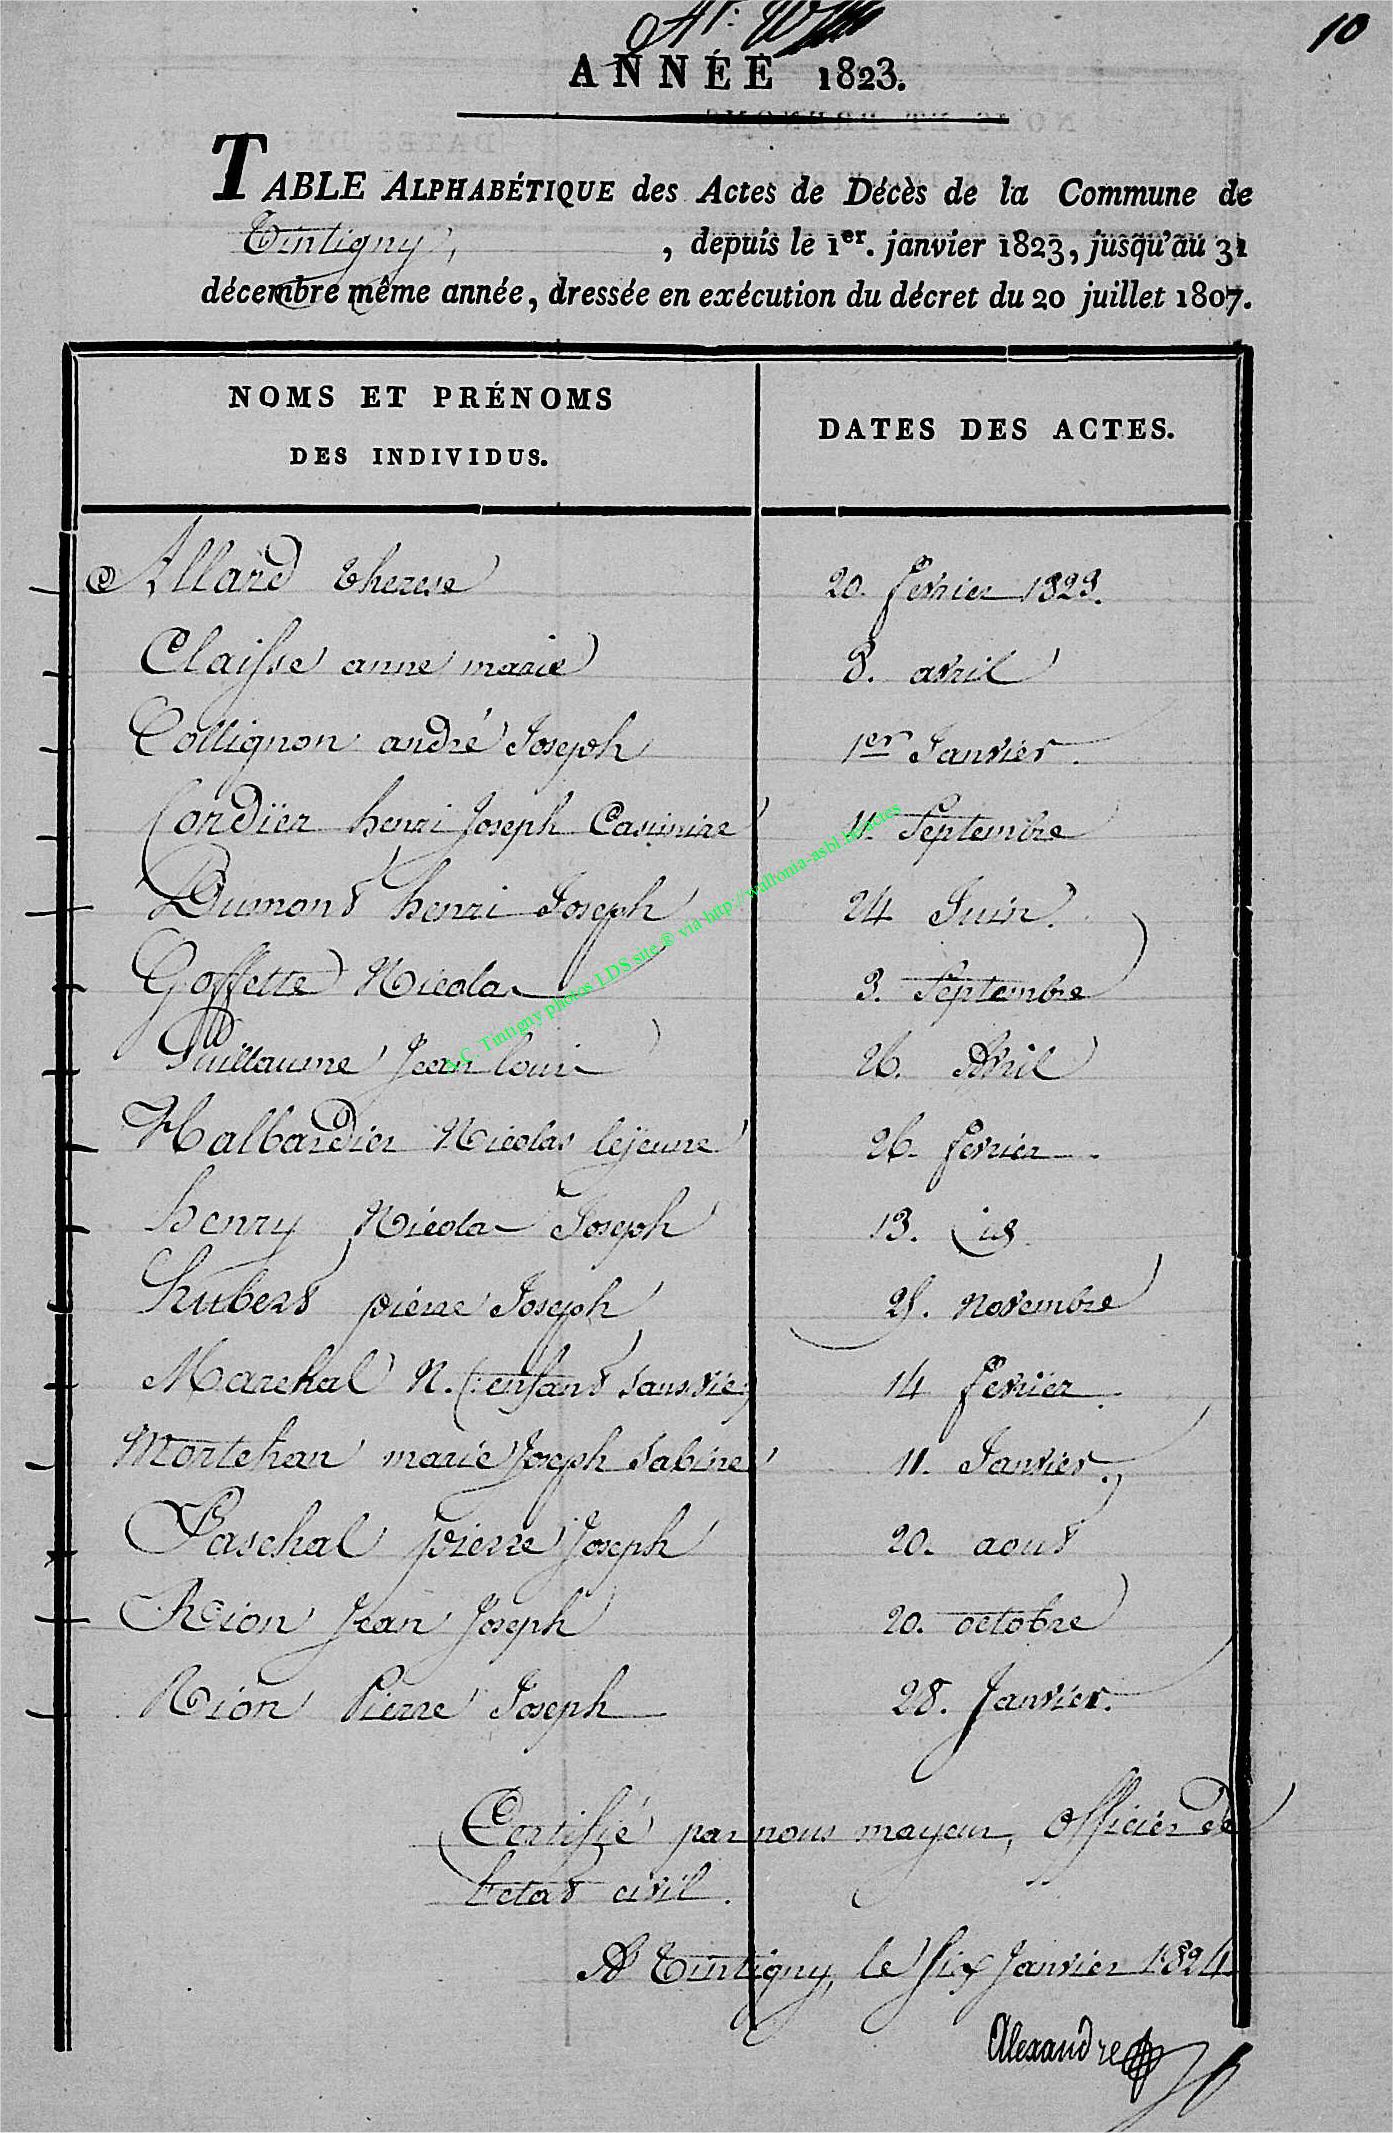 10
ANNÉE 1823.
TABLE ALPHABÉTIQUE des Actes de Décès de la Commune de
Tintigny, , depuis le 1er. janvier 1823, jusqu'au 31
décembre même année, dressée en exécution du décret du 20 juillet 1807.
NOMS ET PRÉNOMS
DES INDIVIDUS.
DATES DES ACTES.
Allard therese 20. fevrier 1823.
Claisse anne marie 8. avril
Collignon andré Joseph 1er Janvier.
Cordier henri Joseph Casimire Septembre
Dumont henri Joseph 24 Juin.
Goffette Nicolas 3. Septembre
Guillaume Jean louis 26. Avril
Halbardier Nicolas lejeune 26. fevrier
henry Nicolas Joseph 13. id
hubert pierre Joseph novembre
Marchal N. (: enfant sans vie :) 14 fevrier
Mortehan marie Joseph Sabine 11. Janvier.
Paschal pierre Joseph 20. aout
Rion Jean Joseph 20. octobre
Rion Pierre Joseph 28. Janvier.
Certifié par nous mayeur, officier de
l'etat civil.
A Tintigny, le six Janvier 1824
Alexandre
A.C. Tintigny photos LDS site ® via http://wallonia-asbl.be/actes